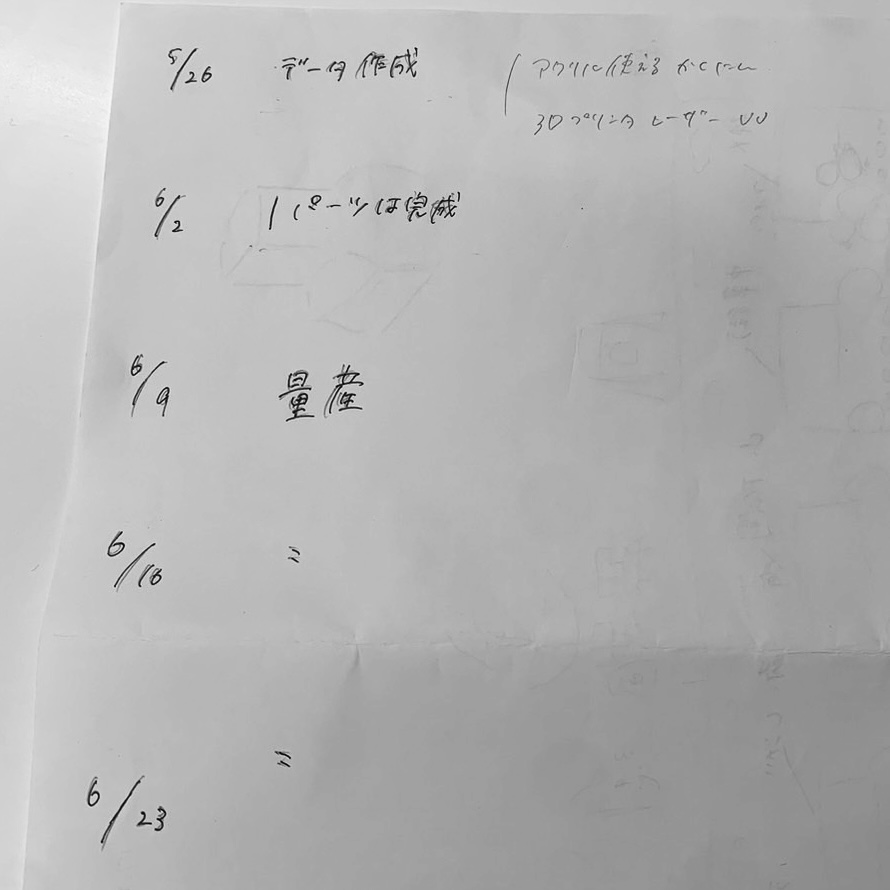 5/26 データ作成 アクリル使える かくにん
3Dプリンタ レーザー UV
6/2 1パーツは完成
6/9 量産
6/16 〃
〃
6/23